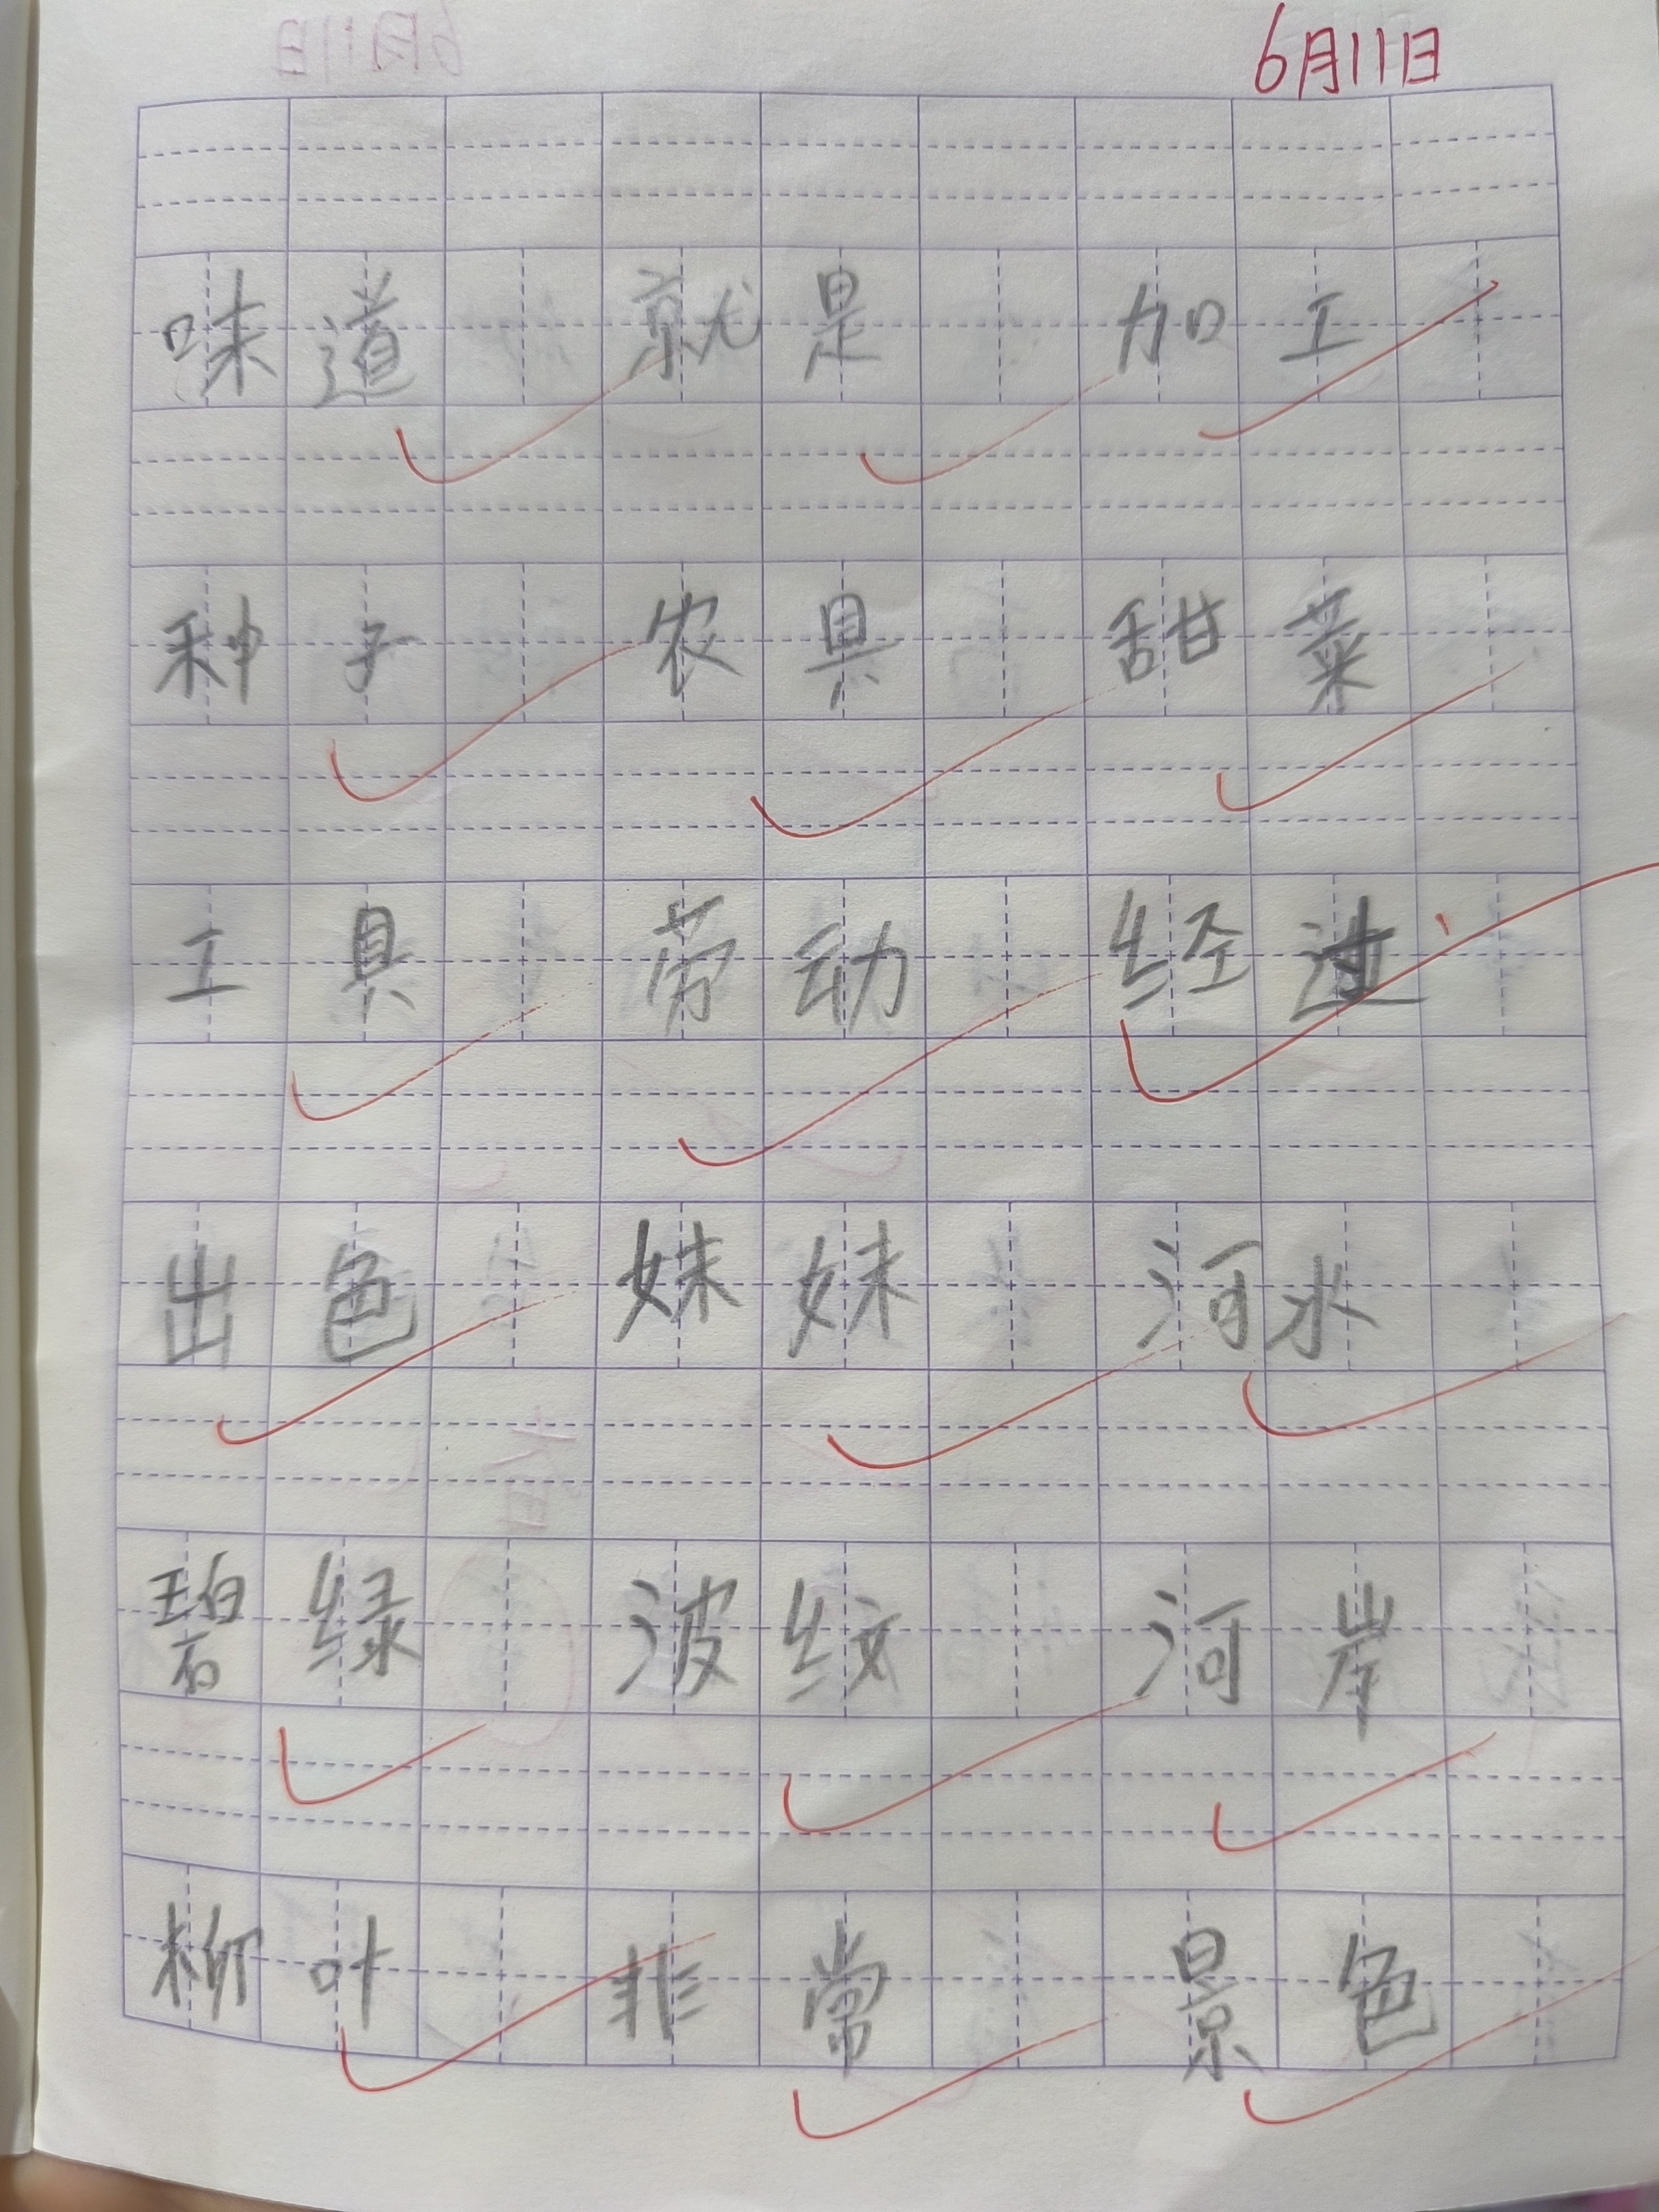 6月11日
味道 就是 加工
种子 农具 甜菜
工具 劳动 经过
出色 妹妹 河水
碧绿 波纹 河岸
柳叶 非常 景色